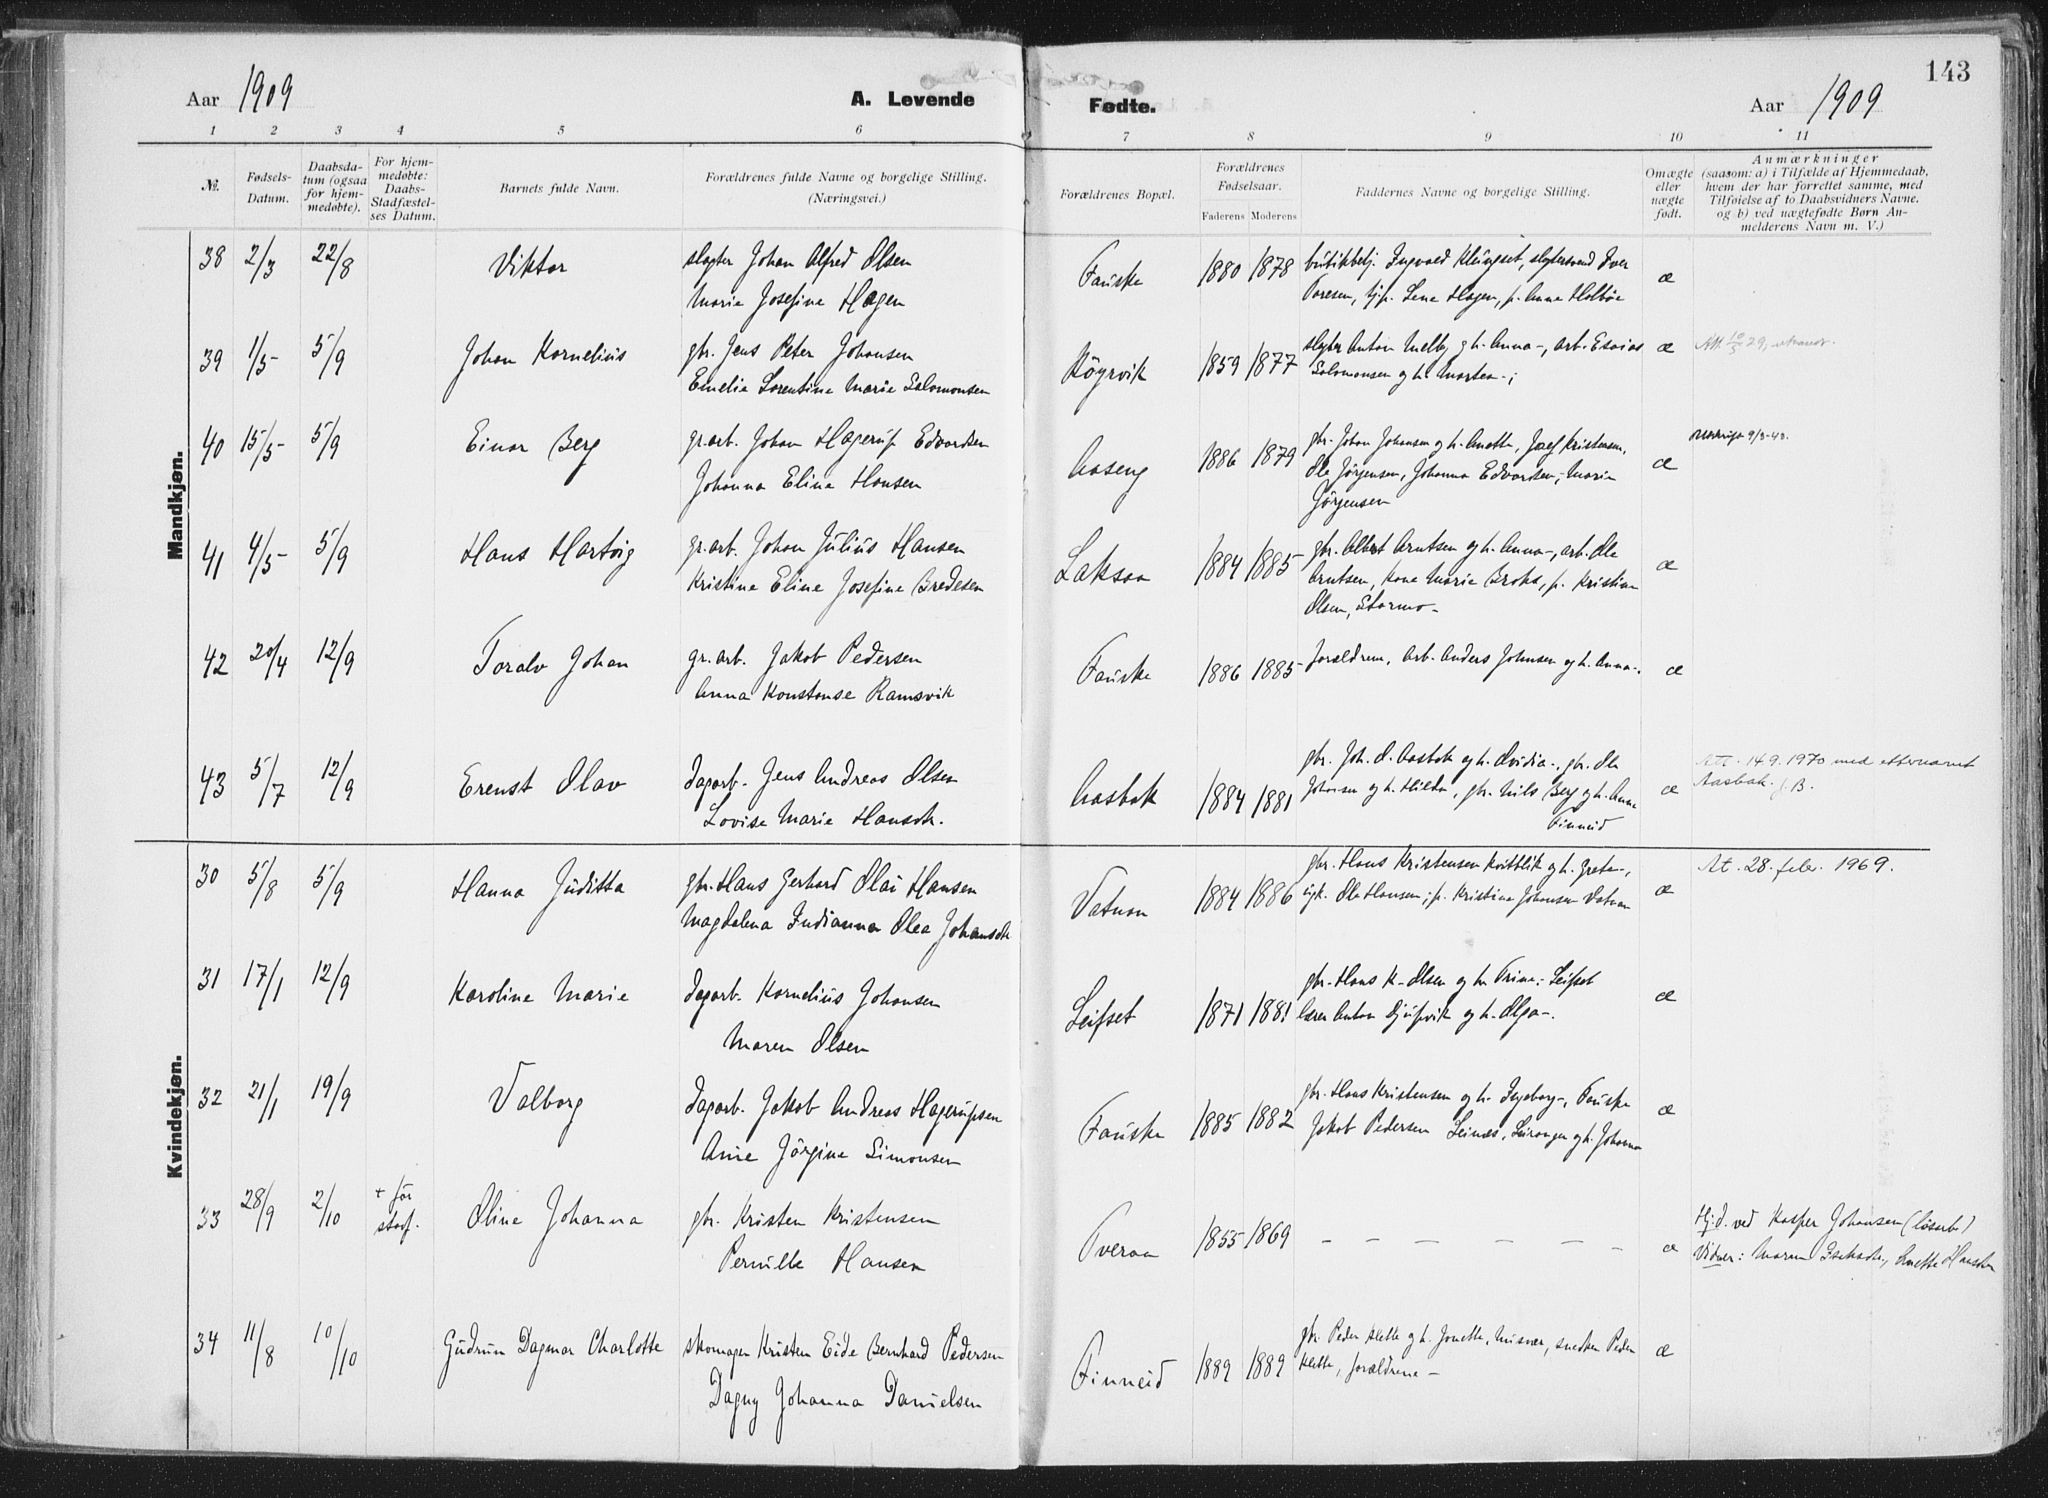 143
Aar 1909
A. Levende Fødte.
Aar 1909
1 2 3 4 5 6 7 8 9 10 11
№.
Fødsels-
Datum.
Daabsda-
tum (ogsaa
for hjem-
medøbte).
For hjem-
medøbte:
Daabs-
Stadfæstel-
ses Datum.
Barnets fulde Navn.
Forældrenes fulde Navne og borgelige Stilling.
(Næringsvei.)
Forældrenes Bopæl.
Forældrenes
Fødselsaar.
Faderens Moderens
Faddernes Navne og borgelige Stilling.
Omægte
eller
nægte
født.
Anmærkninger
(saasom: a) i Tilfælde af Hjemmedaab,
hvem der har forrettet samme, med
Tilføielse af to Daabsvidners Navne.
og b) ved nægtefødte Børn An-
melderens Navn m. V.)
Mandkjøn.
38 2/3 22/8 Viktor slagter Johan Alfred Olsen Fauske 1880 1878 butikbetj. Ingvald Klungset, slagtersvend Iver æ
Marie Josefine Hagen Toresen, tjp. Lene Hagen, p. Anna Holbøe
39 1/5 5/9 Johan Kornelius gbr. Jens Peter Johansen Røyrvik 1859 1877 slagter Anton Melby og h. Anna-, arb. Esaias æ
Emelie Lorentine Marie Salomonsen Salomonsen og h. Martea-;
40 15/5 5/9 Einar Berg gr.arb. Johan Hagerup Edvardsen Aaseng 1886 1879 gbr. Johan Johansen og h. Anette, Josef Kristensen, æ
Johanna Eline Hansen Ole Jørgensen, Johanna Edvardsen, Marie
Jørgensen
41 4/5 5/9 Hans Hartvig gr.arb. Johan Julius Hansen Laksaa 1884 1885 gbr. Albert Arntsen og h. Anna-, arb. Ole æ
Kristine Eline Josefine Bredesen Arntsen, Kone Marie Broks, p. Kristine
Olsen, Stormo-
42 20/4 12/9 Toralv Johan gr.arb. Jakob Pedersen Fauske 1886 1885 forældrene, arb. Anders Johnsen og h. Anna-. æ
Anna Konstanse Ramsvik
43 5/7 12/9 Erenst Olav dagarb. Jens Andreas Olsen Aasbak 1884 1881 gbr. Joh. O. Aasbak og h. Ovidia-, gbr. Ole æ Att. 14.9.1970 med etternavnet
Lovise Marie Hansdt. Johnsen og h. Hilda, gbr. Nils Berg og h. Anne Aasbak. J.B.
Finneid
Kvindekjøn.
30 5/8 5/9 Hanna Juditta gbr. Hans Gerhard Olai Hansen Vatnan 1884 1886 gbr. Hans Kristensen Kvitblik og h. Grete-, æ At. 28. febr. 1969.
Magdalena Indianna Olea Johansdt. Ole Hansen; p. Kristine Johansen Vatnan
31 17/1 12/9 Karoline Marie dagarb. Kornelius Johansen Leifset 1871 1881 gbr. Hans K. Olsen og h. Trine- Leifset æ
Maren Olsen lærer Anton Djupvik og h. Olga-.
32 21/1 19/9 Valborg dagarb. Jakob Andreas Hagerupsen Fauske 1885 1882 gbr. Hans Kristensen og h. Ingeborg-, Fauske æ
Anne Jørgine Simonsen Jakob Pedersen Leinæs, Leirangen og h. Johanna
33 28/9 2/10 + før
stadf. Oline Johanna gbr. Kristen Kristensen Tveraa 1855 1869 - - - - - - æ Hj.d. ved Kasper Johansen (løsarb.)
Pernille Hansen Vidner: Maren Isaksdt., Anette Hansdtr.
34 11/8 10/10 Gudrun Dagmar Charlotte skomager Kristen Eide Bernhard Pedersen Finneid 1889 1889 gbr. Peder Klette og h. Jonette, Misvær, snedker Peder æ
Dagny Johanna Danielsen Klette, forældrene-